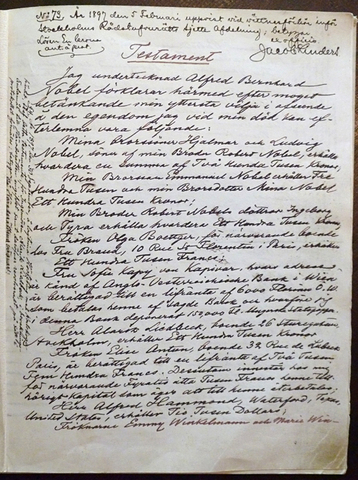 No 73. År 1897 den 5 Februari uppvist vid vittnesförhör inför
Stockholms Rådstufvurätts sjette Afdelning; betygar
Lösen En krona
ex officio
Jacob Lindert
Testament
Jag undertecknad Alfred Bernhard
Nobel förklarar härmed efter moget
betänkande min yttersta vilja i afseende
å den egendom jag vid min död kan ef-
terlemna vara följande:
Mina Brorssöner Hjalmar och Ludvig
Nobel, söner af min Broder Robert Nobel, erhålla
hvardera en Summa af Två Hundra Tusen Kronor;
Min Brorson Emmanuel Nobel erhåller Tre
Hundra Tusen och min Brorsdotter Mina Nobel
Ett Hundra Tusen Kronor;
Min Broder Robert Nobels döttrar Ingeborg
och Tyra erhålla hvardera Ett Hundra Tusen Kronor;
Fröken Olga Boettger, för närvarande boende
hos Fru Brand, 10 Rue St Florentin i Paris, erhåller
Ett Hundra Tusen Francs;
Fru Sofie Kapy von Kapivar, hvars adress
är känd af Anglo-Oesterreichische Bank i Wien
är berättigad till en lifränta af 6000 Florins Ö.W.
som betalas henne af sagde Bank och hvarför jag
i denna Bank deponerat 150,000 Fl. i Ungerska Statspapper;
Herr Alarik Liedbeck, boende 26 Sturegatan,
Stockholm, erhåller Ett Hundra Tusen Kronor;
Fröken Elise Antun, boende 32 Rue de Lubeck,
Paris, är berättigad till en lifränta af Två Tusen
Fem Hundra Francs. Desutom innestår hos mig
för närvarande Fyratio åtta Tusen Francs henne till-
hörigt kapital som äger att till henne återbetalas;
Herr Alfred Hammond, Waterford, Texas,
United States, erhåller Tio Tusen Dollars;
Fröknarne Emmy Winkelmann och Marie Win-